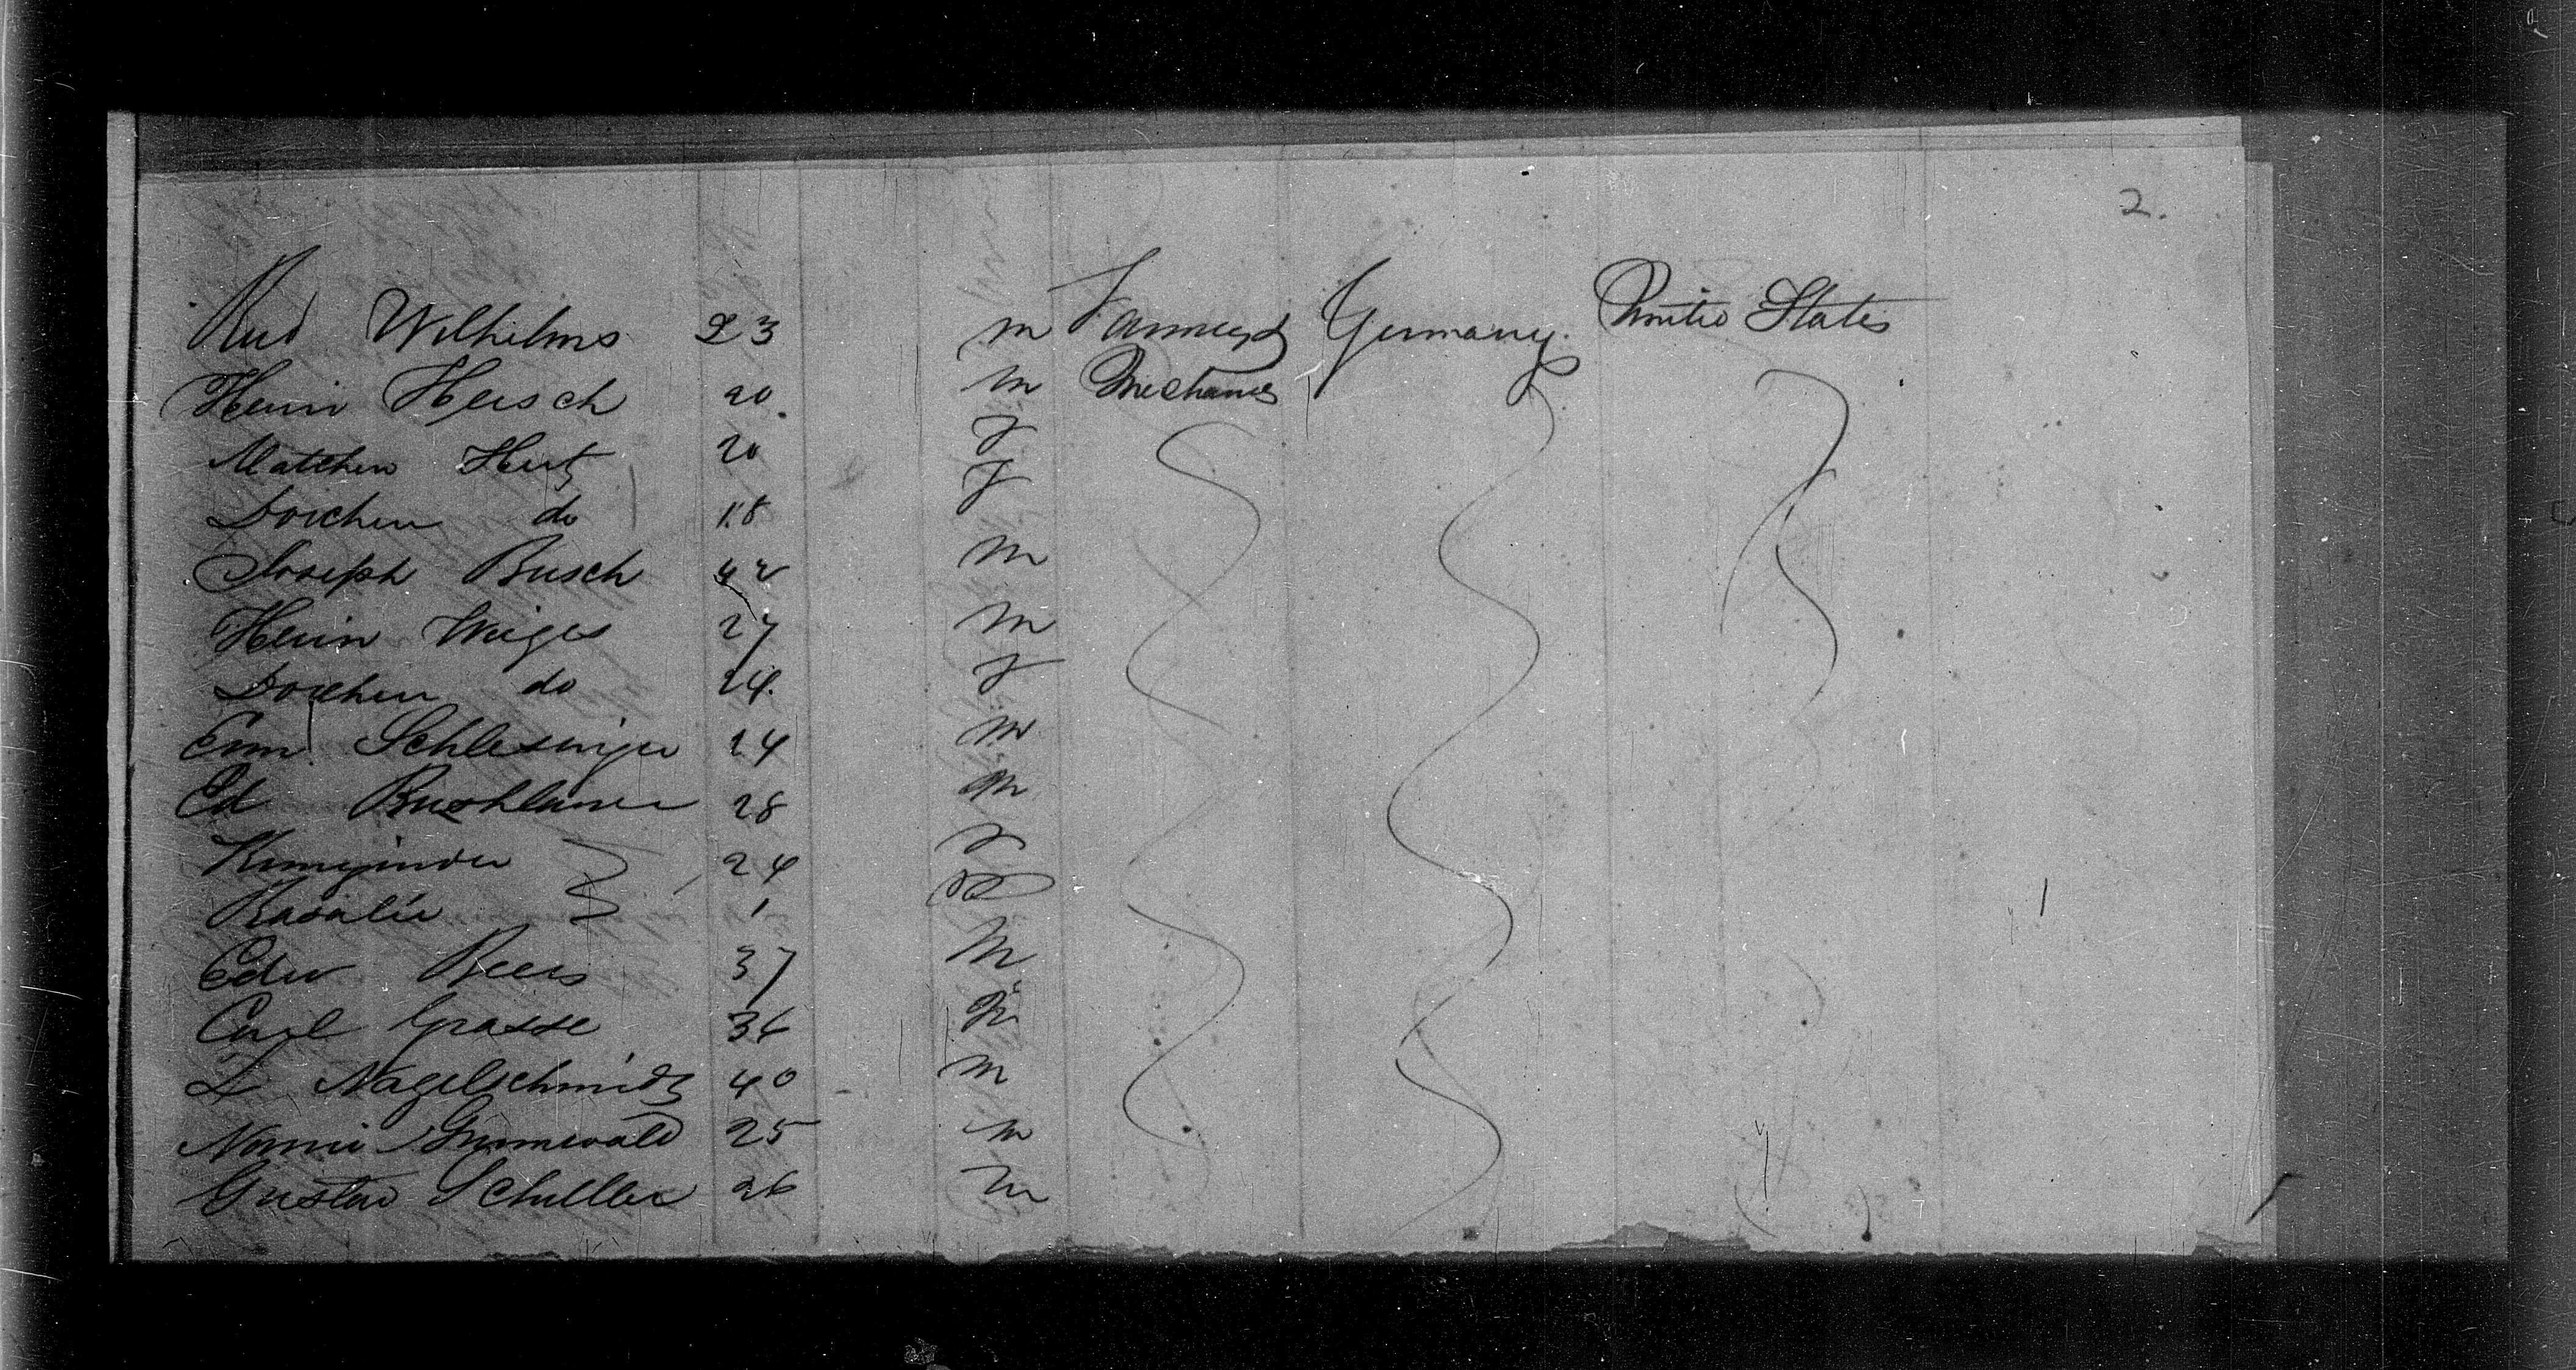 2.
Rud Wilhelms 23 m Farmers & Germany. United States
Heinr Hersch 20 m Mechanics
Matchen Hertz 20 f
Dorchen do 18 f
Joseph Busch 42 m
Heinr Weiges 27 m
Dorchen do 24 f
Em. Schlesinger 24 m
Ed 28 m
24 f
Rosalie 1
Edw Beers 37 m
Carl Grasse 36 m
L Nagelschmidt 40 m
Grunewald 25 m
Gustav Schuller 26 m